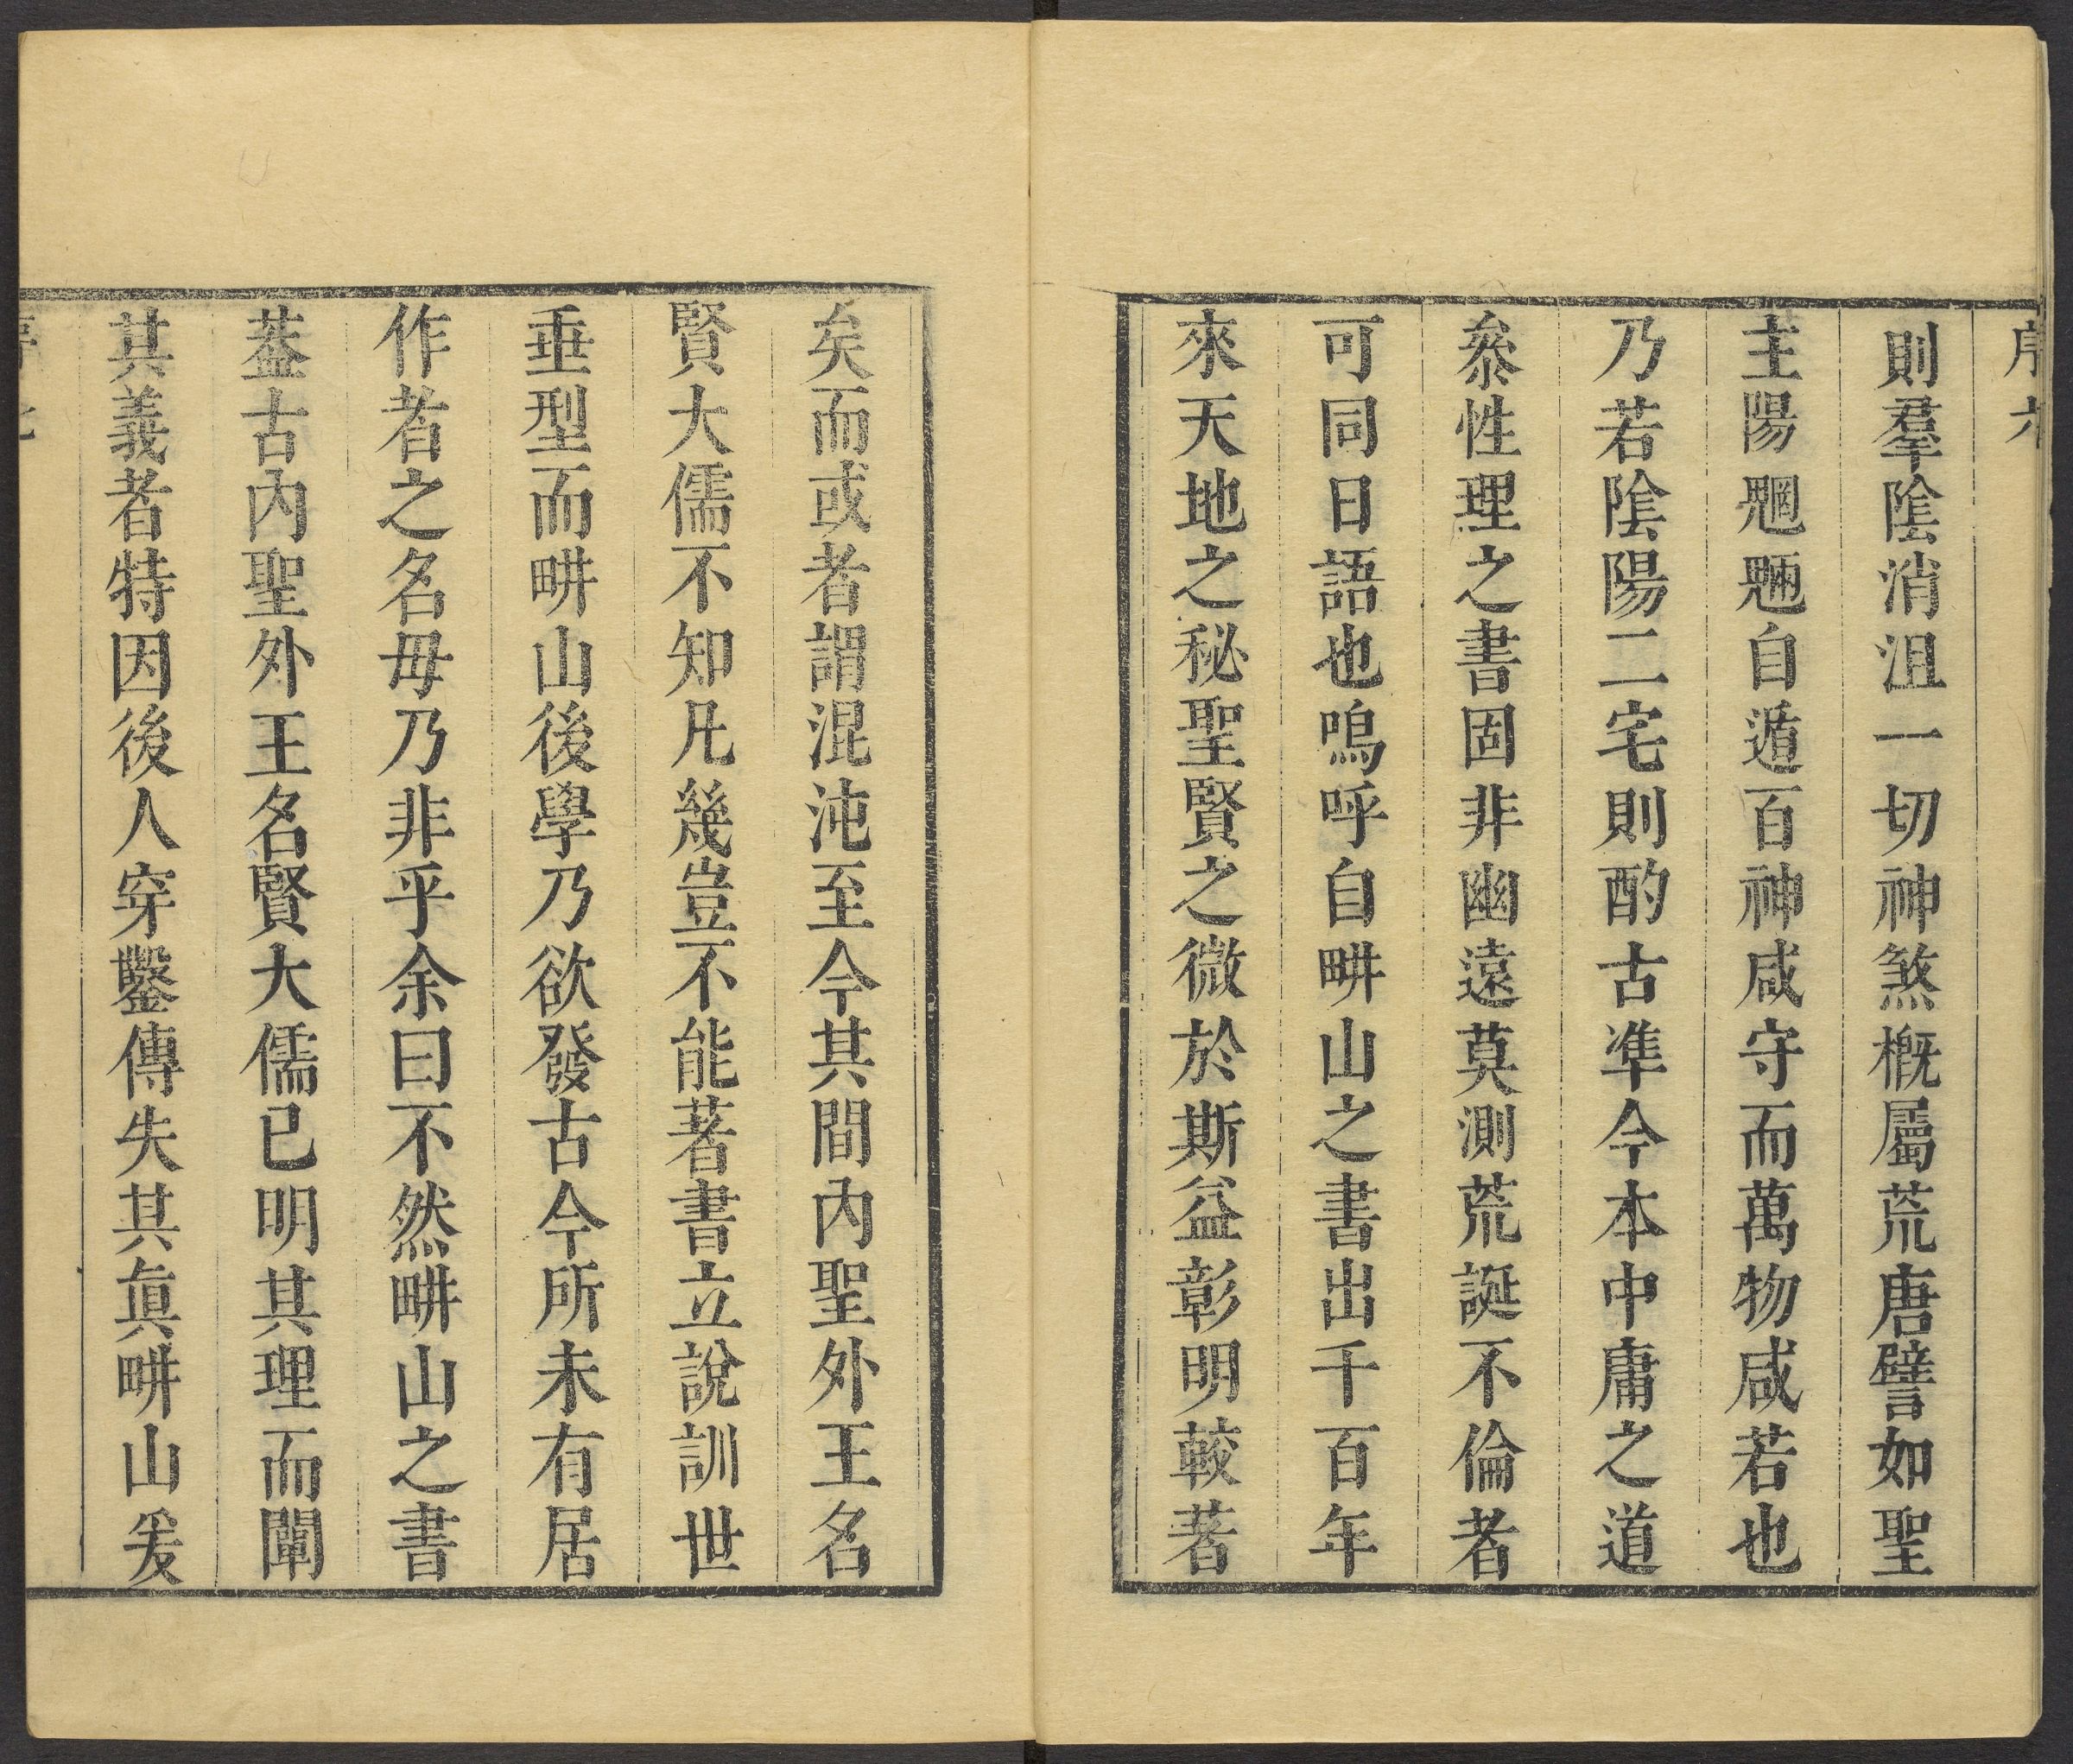 序六
則羣陰消沮一切神煞槪屬荒唐譬如聖
主陽魍魎自遁百神咸守而萬物咸若也
乃若陰陽二宅則酌古準今本中庸之道
叅性理之書固非幽遠莫測荒誕不倫者
可同日語也嗚呼自畊山之書出千百年
來天地之秘聖賢之微於斯益彰明較著
矣而或者謂混沌至今其間內聖外王名
賢大儒不知凡幾豈不能著書立說訓世
垂型而畊山後學乃欲發古今所未有居
作者之名毋乃非乎余曰不然畊山之書
葢古內聖外王名賢大儒已明其理而闡
其義者特因後人穿鑿傳失其眞畊山爰
序七